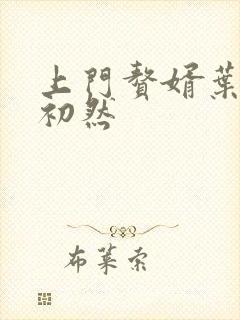 上門贅婿葉
初然
布萊索